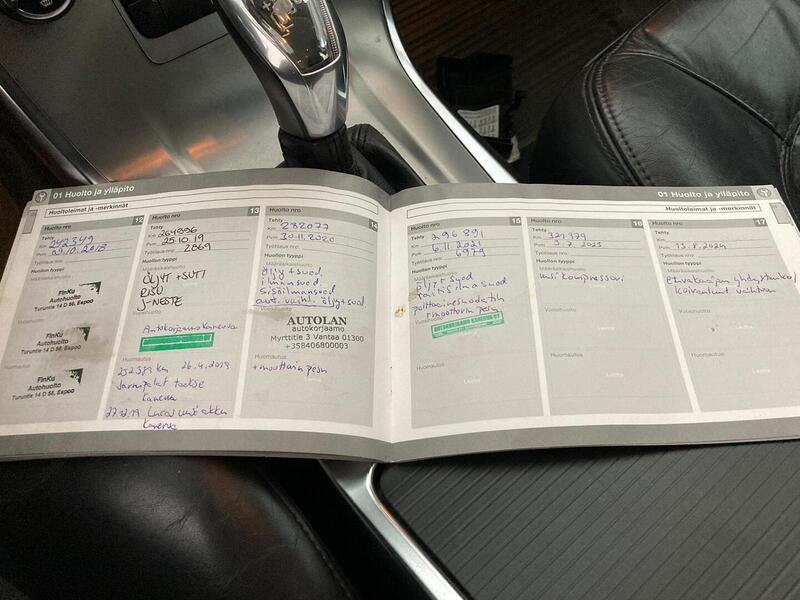 01 Huolto ja ylläpito
Huoltoleimat ja -merkinnät
Huolto nro 12
Tehty
Km 242349
Pvm 09.10.2018
Työtilaus nro:
Huollon tyyppi
Määräaikaishuolto
FinKu
Autohuolto
Turuntie 14 D 56, Espoo
FinKu
Autohuolto
Turuntie 14 D 56, Espoo
Huomautus
FinKu
Autohuolto
Turuntie 14 D 56, Espoo
Huolto nro 13
Tehty
Km 264896
Pvm 25.10.19
Työtilaus nro: 2869
Huollon tyyppi
Määräaikaishuolto
ÖLJYT + SUTI
PISU
J-NESTE
Autokorjaamo Kanerva
Huomautus
252379 km 26.4.2019
Jarrupalat taakse
Kanerva
Kanerva
Huolto nro 14
Tehty
Km 282077
Pvm 30.11.2020
Työtilaus nro:
Huollon tyyppi
Määräaikaishuolto
öljy + suod.
ilmansuod.
sisäilmansuod
aut. vaiht. öljy+suod
AUTOLAN
autokorjaamo
Myrttitie 3 Vantaa 01300
+358406800003
Huomautus
+ moottorin pesu
01 Huolto ja ylläpito
Huoltoleimat ja -merkinnät
Huolto nro 15
Tehty
Km 296891
Pvm 6.11.2021
Työtilaus nro: 6979
Huollon tyyppi
Määräaikaishuolto
öljyt + suod
polttoainesuodatin
+ moottorin pesu
AUTOKORJAAMO KANERVA OY
Huomautus
Leima
Huolto nro 16
Tehty
Km 321979
Työtilaus nro:
Huollon tyyppi
Määräaikaishuolto
uusi kompressori
Leima
Huomautus
Leima
Huolto nro 17
Tehty
Km
Pvm 13.8.2024
Työtilaus nro:
Huollon tyyppi
Määräaikaishuolto
Leima
Huomautus
Leima